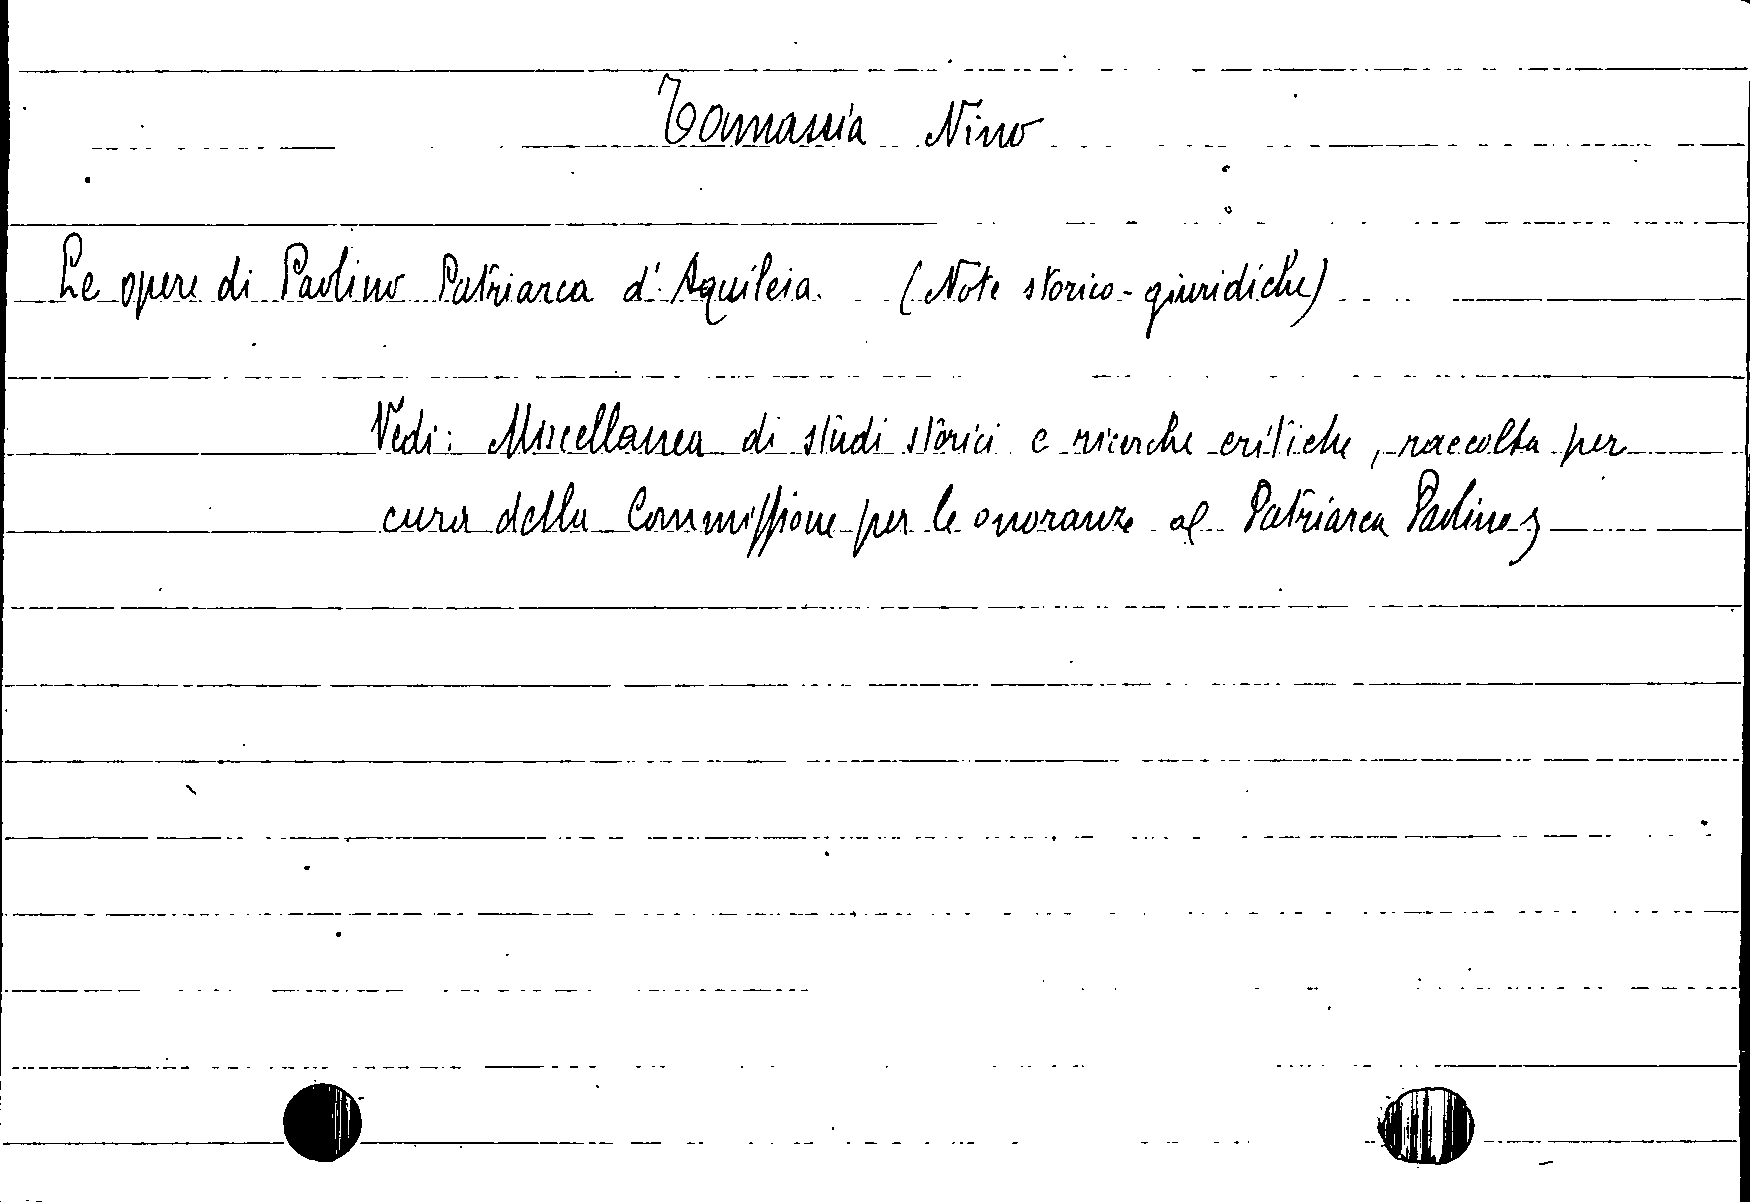 Tamassia Nino
Le opere di Paolino Patriarca d'Aquileia. (Note storico-giuridiche)
Vedi: Miscellanea di studi storici e ricerche critiche, raccolta per
cura della Commissione per le onoranze al Patriarca Paolino